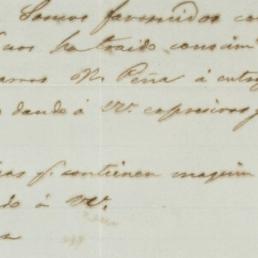 Somos favorecidos co
nos ha traido consim
amos N. Peña á entreg
dando á VV. expresivas g
as q. contienen maquin
do á VV.